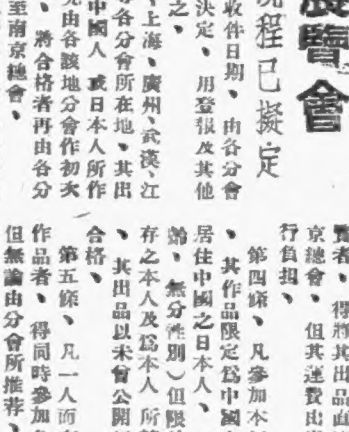 展覽會
程已擬定
收件日期、由各分會
決定、用登報及其他
之、
、上海、廣州、武漢、江
各分會所在地、其出
中國人 或日本人所作
由各該地分會作初次
、將合格者再由各分
至南京總會、
覽者、得將其出品直
京總會、但其運費出
行負担、
第四條、凡參加本
、其作品限定爲中國
居住中國之日本人、
齡、無分性別）但限
存之本人及爲本人所
、其出品以未曾公開
合格、
第五條、凡一人而
作品者、得同時參加
但無論由分會所推荐、